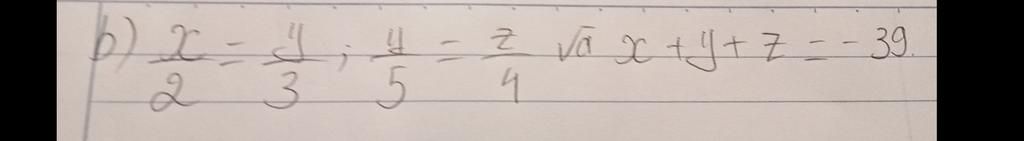 b) x/2 = y/3 ; y/5 = z/4 và x + y + z = - 39.